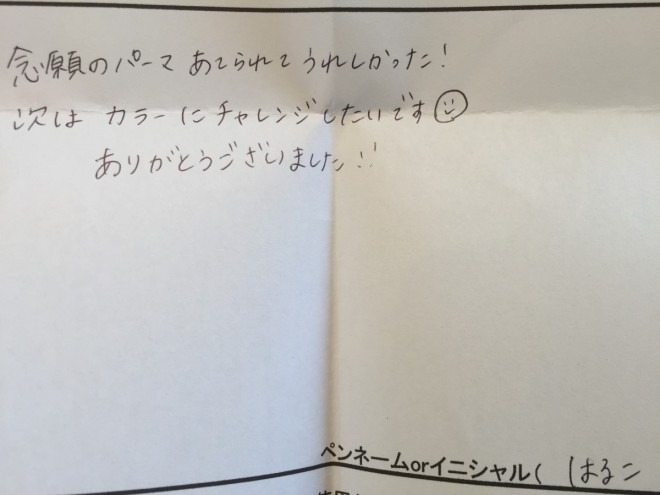 念願のパーマ あてられて うれしかった!
次は カラーにチャレンジしたいです☺
ありがとうございました!!
ペンネームorイニシャル( はるこ